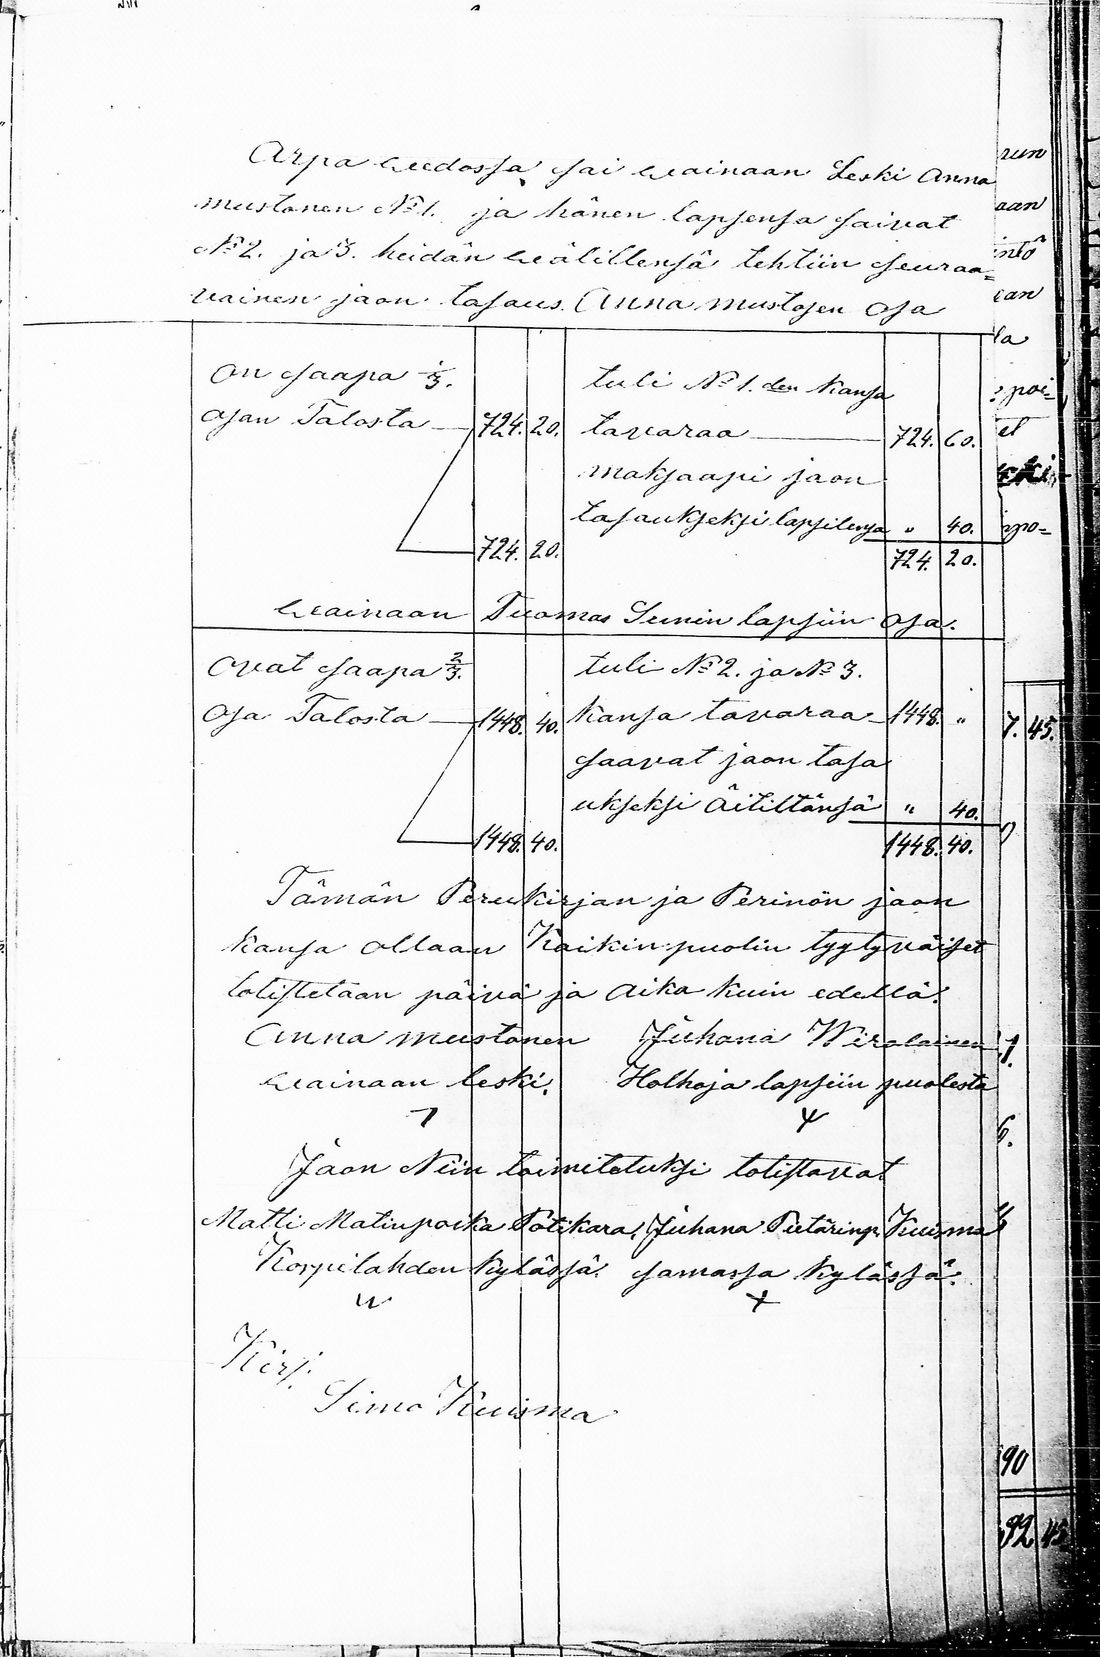 Arpa weedossa sai wainaan Leski Anna
Mustonen No 1. ja hänen lapsensa saivat
No 2. ja 3. heidän wälillensä tehtiin seuraa=
vainen jaon tasaus. Anna Mustosen osa
On saapa 1/3.
osan Talosta — 724. 20.
724. 20.
tuli No 1. den kansa
tavaraa — 724. 60.
maksaapi jaon
tasaukseksi lapsilensa " 40.
724. 20.
wainaan Tuomas Sunin lapsiin osa.
Ovat saapa 2/3.
osa Talosta — 1448. 40.
1448. 40.
tuli No 2. ja No 3.
kansa tavaraa — 1448. "
saavat jaon tasa
ukseksi äitiltänsä " 40.
1448. 40.
Tämän Perukirjan ja Perinön jaon
kansa ollaan Kaikin puolin tyytyväiset
totistetaan päivä ja aika kuin edellä.
Anna Mustonen Juhana Wirolainen
wainaan leski. Holhoja lapsiin puolesta
Jaon Niin toimitetuksi totistavat
Matti Matinpoika Potikara, Juhana Pietarinp. Kuisma
Korpilahden kylässä. samassa kylässä.
Kirj.
Simo Kuisma
run
aan
intö
an
la
poi=
et
po=
7. 45.
1.
6.
90
92 45